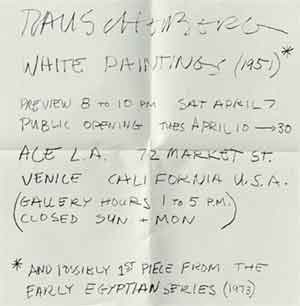 RAUSCHENBERG
WHITE PAINTINGS (1951)*
PREVIEW 8 TO 10 PM SAT APRIL 7
PUBLIC OPENING TUES APRIL 10 → 30
ACE L.A. 72 MARKET ST.
VENICE CALIFORNIA U.S.A.
(GALLERY HOURS 1 TO 5 P.M.
CLOSED SUN + MON)
* AND POSSIBLY 1ST PIECE FROM THE
EARLY EGYPTIAN SERIES (1973)